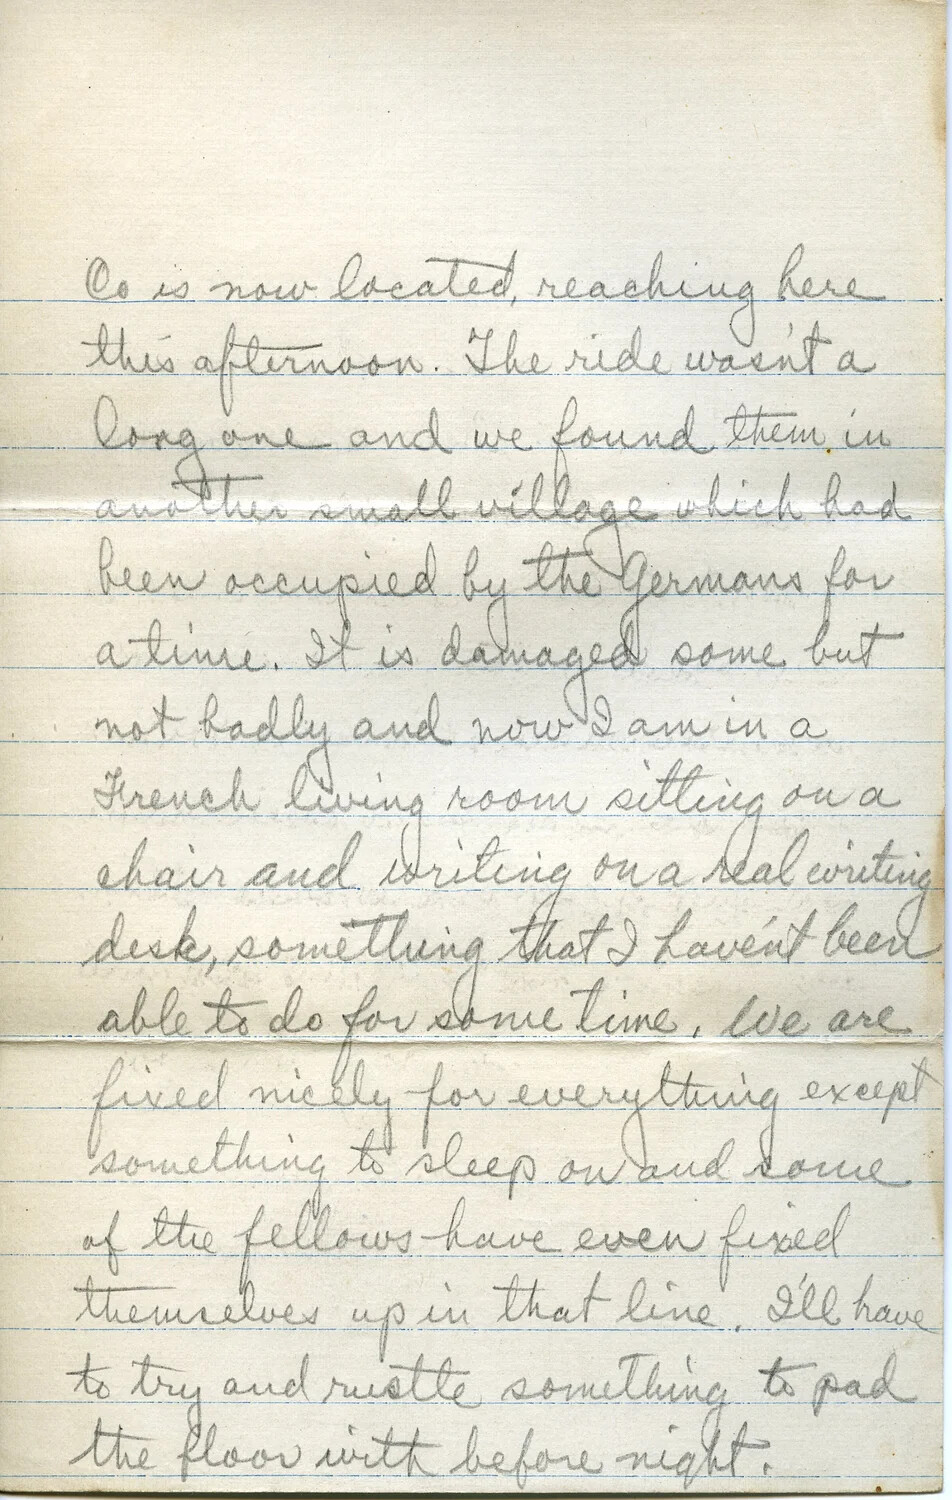 Co is now located, reaching here
this afternoon. The ride wasn't a
long one and we found them in
another small village which had
been occupied by the Germans for
a time. It is damaged some but
not badly and now I am in a
French living room sitting on a
chair and writing on a real writing
desk, something that I haven't been
able to do for some time. We are
fixed nicely for everything except
something to sleep on and some
of the fellows have even fixed
themselves up in that line. I'll have
to try and rustle something to pad
the floor with before night.